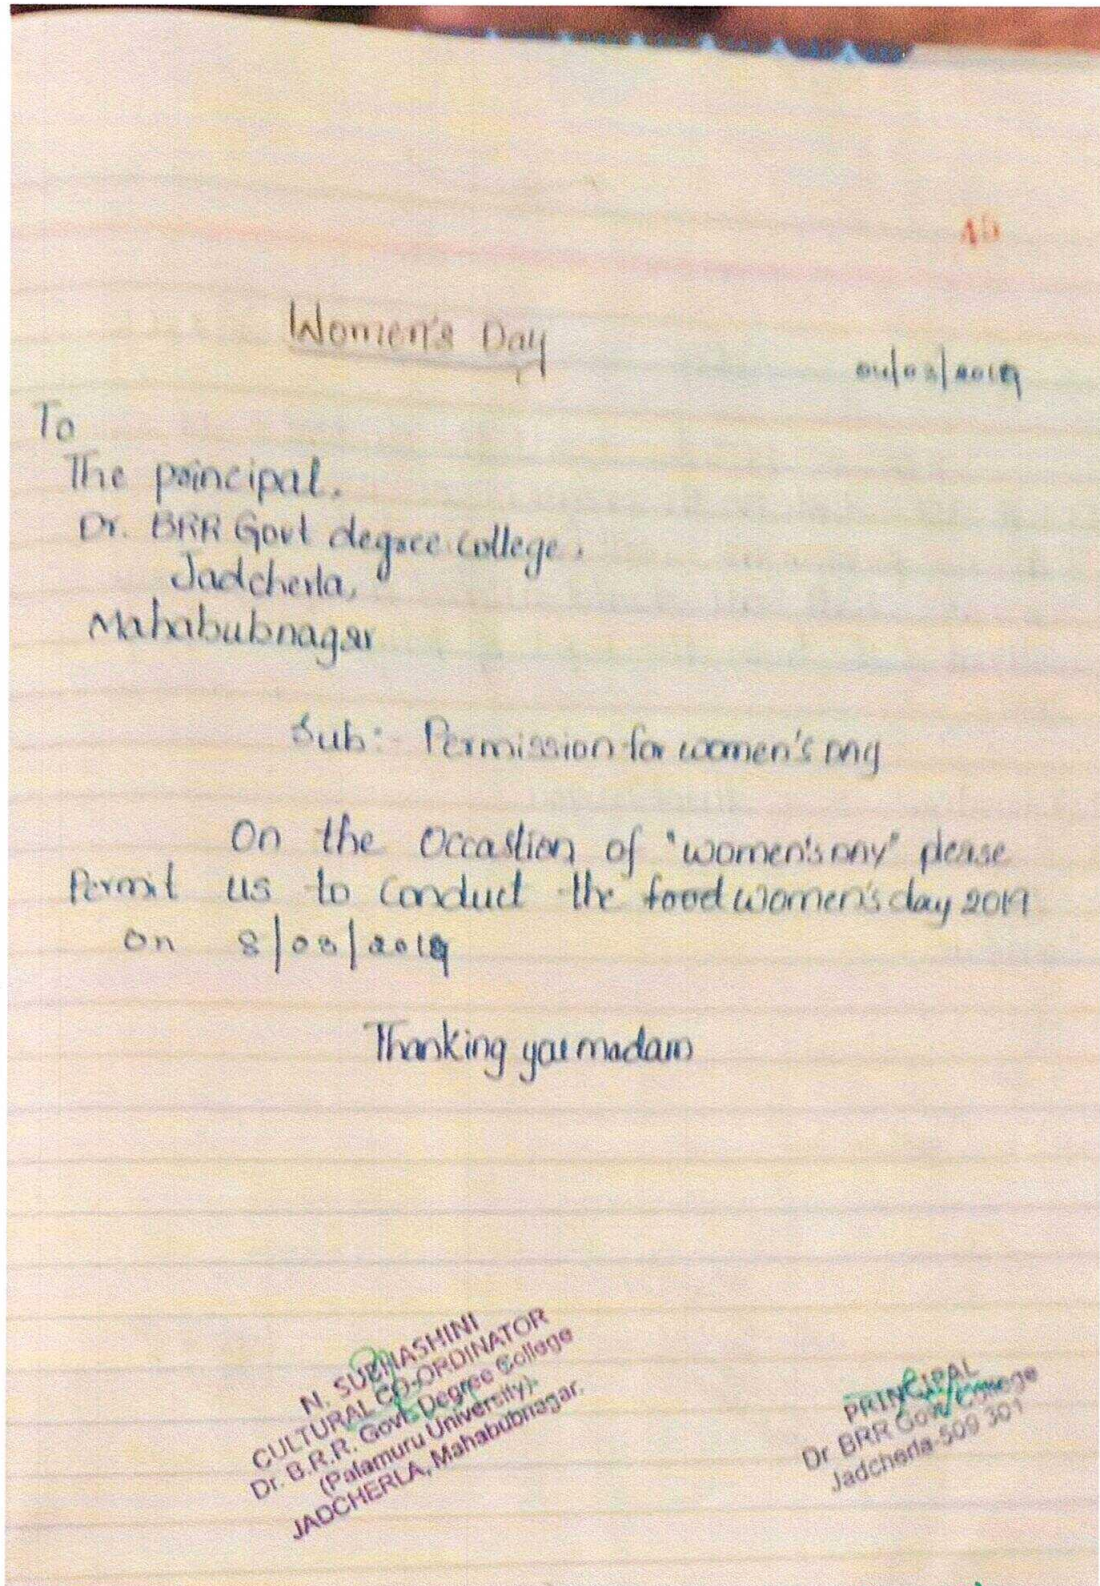 45
Women's Day
04/03/2019
To
The principal,
Dr. BRR Govt degree college,
Jadcherla,
Mahabubnagar
Sub:- Permission for women's Day
On the Occastion of "women's Day" please
Permit us to Conduct the food women's day 2019
on 8/03/2019
Thanking you madam
N. SUBHASHINI
CULTURAL CO-ORDINATOR
Dr. B.R.R. Govt. Degree College
(Palamuru University)
JADCHERLA, Mahabubnagar.
PRINCIPAL
Dr BRR Govt College
Jadcherla-509 301